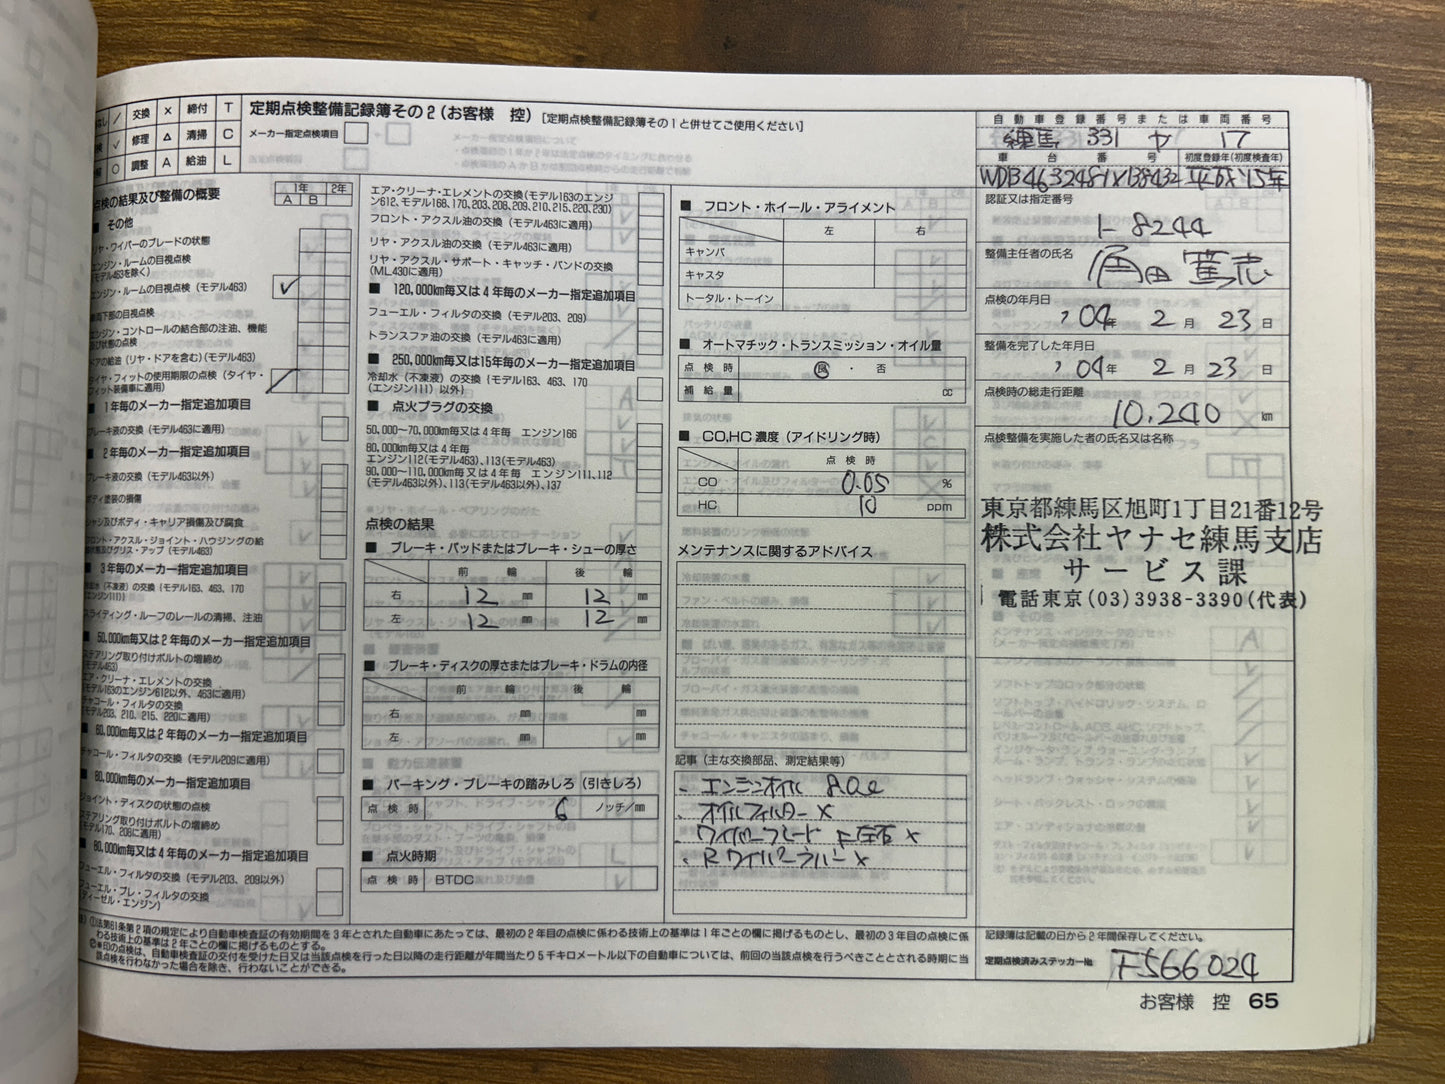 交換 × 締付 T
修理 △ 清掃 C
調整 A 給油 L
定期点検整備記録簿その2(お客様 控)[定期点検整備記録簿その1と併せてご使用ください]
メーカー指定点検項目
点検の結果及び整備の概要
1年 2年
A B
■ その他
リヤ・ワイパーのブレードの状態
エンジン・ルームの目視点検
(モデル463を除く)
エンジン・ルームの目視点検(モデル463)
車両下部の目視点検
エンジン・コントロールの結合部の注油、機能
及び状態の点検
ドアの給油(リヤ・ドアを含む)(モデル463)
タイヤ・フィットの使用期限の点検(タイヤ・
フィット装備車に適用)
■ 1年毎のメーカー指定追加項目
ブレーキ液の交換(モデル463に適用)
■ 2年毎のメーカー指定追加項目
ブレーキ液の交換(モデル463以外)
ボディ塗装の損傷
シャシ及びボディ・キャリア損傷及び腐食
フロント・アクスル・ジョイント・ハウジングの給
脂状態及びグリス・アップ(モデル463)
■ 3年毎のメーカー指定追加項目
冷却水(不凍液)の交換(モデル163、463、170
(エンジン111))
スライディング・ルーフのレールの清掃、注油
■ 60,000km毎又は2年毎のメーカー指定追加項目
ステアリング取り付けボルトの増締め
(モデル463)
エア・クリーナ・エレメントの交換
(モデル163のエンジン612以外、463に適用)
チャコール・フィルタの交換
(モデル203、210、215、220に適用)
■ 60,000km毎又は2年毎のメーカー指定追加項目
チャコール・フィルタの交換(モデル209に適用)
■ 80,000km毎のメーカー指定追加項目
ジョイント・ディスクの状態の点検
ステアリング取り付けボルトの増締め
(モデル170、208に適用)
■ 80,000km毎又は4年毎のメーカー指定追加項目
フューエル・フィルタの交換(モデル203、209以外)
フューエル・プレ・フィルタの交換
(ディーゼル・エンジン)
エア・クリーナ・エレメントの交換(モデル163のエンジ
ン612、モデル168、170、203、208、209、210、215、220、230)
フロント・アクスル油の交換(モデル463に適用)
リヤ・アクスル油の交換(モデル463に適用)
リヤ・アクスル・サポート・キャッチ・バンドの交換
(ML430に適用)
■ 120,000km毎又は4年毎のメーカー指定追加項目
フューエル・フィルタの交換(モデル203、209)
トランスファ油の交換(モデル463に適用)
■ 250,000km毎又は15年毎のメーカー指定追加項目
冷却水(不凍液)の交換{モデル163、463、170
(エンジン111)}以外}
■ 点火プラグの交換
50,000〜70,000km毎又は4年毎 エンジン166
80,000km毎又は4年毎
エンジン112(モデル463)、113(モデル463)
90,000〜110,000km毎又は4年毎 エンジン111、112
(モデル463以外)、113(モデル463以外)、137
点検の結果
■ ブレーキ・パッドまたはブレーキ・シューの厚さ
前 輪 後 輪
右 12 mm 12 mm
左 12 mm 12 mm
■ ブレーキ・ディスクの厚さまたはブレーキ・ドラムの内径
前 輪 後 輪
右 mm mm
左 mm mm
■ パーキング・ブレーキの踏みしろ(引きしろ)
点検時 6 ノッチ/mm
■ 点火時期
点検時 BTDC
■ フロント・ホイール・アライメント
左 右
キャンバ
キャスタ
トータル・トーイン
■ オートマチック・トランスミッション・オイル量
点検時 適 ・ 否
補給量 cc
■ CO,HC濃度(アイドリング時)
点検時
CO 0.05 %
HC 10 ppm
メンテナンスに関するアドバイス
記事(主な交換部品、測定結果等)
・エンジンオイル 8.0ℓ
・オイルフィルター ×
・ワイパーブレード F左右 ×
・Rワイパーラバー ×
自動車登録番号または車両番号
練馬 331 ヤ 17
車台番号 初度登録年(初度検査年)
WDB4632481X138432 平成15年
認証又は指定番号
1-8244
整備主任者の氏名
角田 篤志
点検の年月日
'04年 2月 23日
整備を完了した年月日
'04年 2月 23日
点検時の総走行距離
10,240 km
点検整備を実施した者の氏名又は名称
東京都練馬区旭町1丁目21番12号
株式会社ヤナセ練馬支店
サービス課
電話東京(03)3938-3390(代表)
注)①法第61条第2項の規定により自動車検査証の有効期間を3年とされた自動車にあたっては、最初の2年目の点検に係わる技術上の基準は1年ごとの欄に掲げるものとし、最初の3年目の点検に係
わる技術上の基準は2年ごとの欄に掲げるものとする。
②※印の点検は、自動車検査証の交付を受けた日又は当該点検を行った日以降の走行距離が年間当たり5千キロメートル以下の自動車については、前回の当該点検を行うべきこととされる時期に当
該点検を行わなかった場合を除き、行わないことができる。
記録簿は記載の日から2年間保存してください。
定期点検済みステッカー№ F566024
お客様 控 65